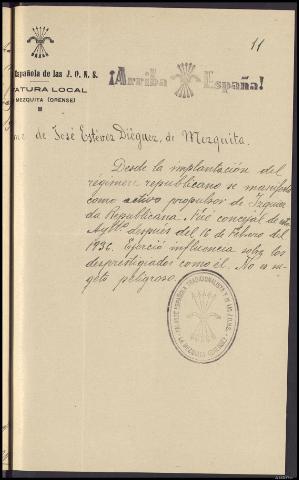 11
Española de las J. O. N. S.
¡Arriba España!
ATURA LOCAL
MEZQUITA (ORENSE)
de José Estévez Diéguez, de Mezquita.
Desde la implantación del
régimen republicano se manifestó
como activo propulsor de Izquier
da Republicana. Fué concejal de este
Aytto. después del 16 de Febrero del
1936. Ejerció influencia sobre los
desprestigiados como él. No es su-
geto peligroso.
FALANGE ESPAÑOLA TRADICIONALISTA Y DE LAS J.O.N.S.
LA MEZQUITA (ORENSE)